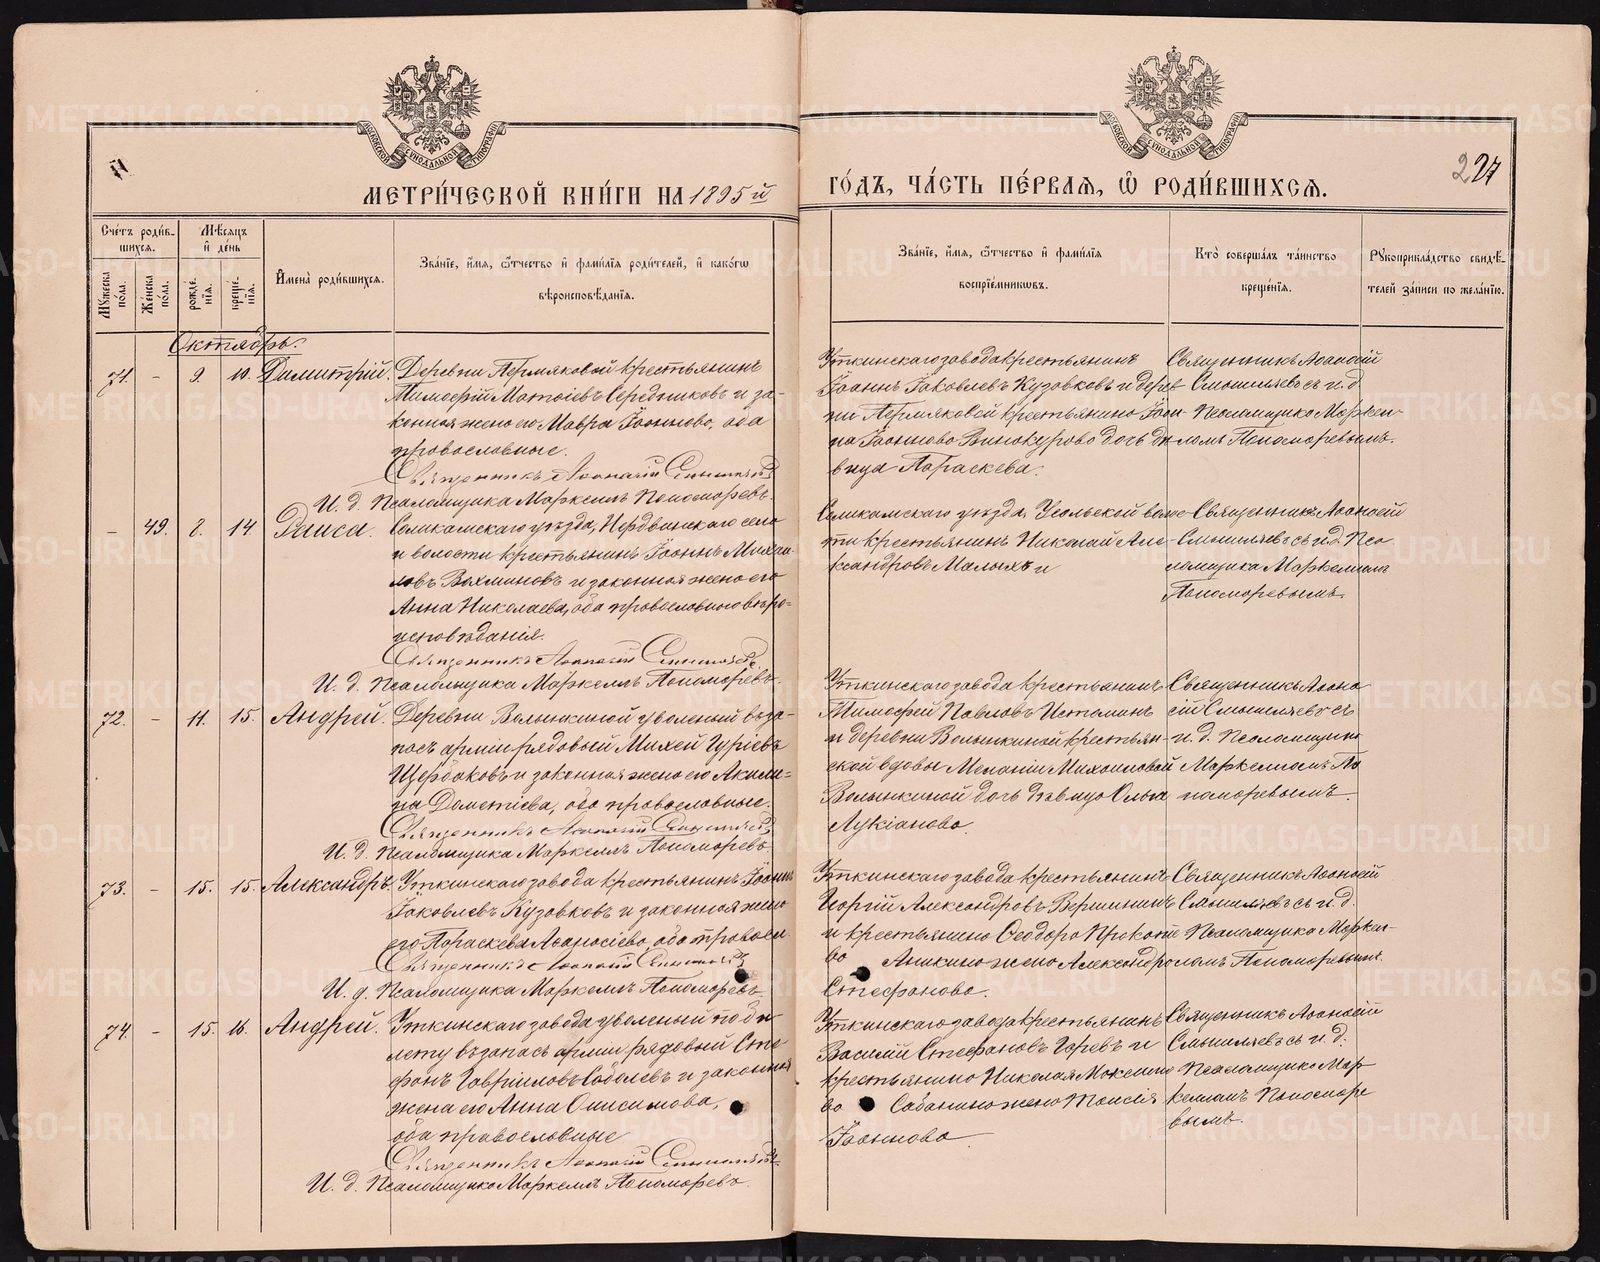 МЕТРИ́ЧЕСКОЙ КНИ́ГИ НА 1895 й
ГО́ДЪ, ЧА́СТЬ ПЕ́РВАЯ, Ѽ РОДИ́ВШИХСЯ.
227
Сче́тъ роди́в-
шихся.
Мѣ́сяцъ
и҆ де́нь
Му́жеска по́ла.
Же́нска по́ла.
рожде́нїя.
креще́нїя.
И҆мена̀ роди́вшихся.
Зва́нїе, и҆́мя, ѻ҆́тчество и҆ фами́лїя роди́телей, и҆ како́гѡ
вѣроисповѣ́данїя.
Зва́нїе, и҆́мя, ѻ҆́тчество и҆ фами́лїя
воспрїе́мникѡвъ.
Кто̀ соверша́лъ та́инство
креще́нїя.
Рꙋкоприкла́дство свидѣ́-
телей за́писи по жела́нїю.
Октябрь.
71. - 9. 10. Димитрій. Деревни Пермяковой крестьянинъ
Тимофей Матѳіевъ Середниковъ и за-
конная жена его Мавра Іоаннова, оба
православные.
Священникъ Аѳанасій Смышляевъ
И. д. Псаломщика Маркеллъ Пономаревъ.
Уткинскаго завода крестьянинъ
Іоаннъ Іаковлевъ Кузовковъ и дерев
ни Пермяковой крестьянина Іоан-
на Іоаннова Винокурова дочь дѣ
вица Параскева.
Священникъ Аѳанасій
Смышляевъ съ и. д.
Псаломщика Маркел-
ломъ Пономаревымъ.
- 49. 8. 14 Раиса. Соликамскаго уѣзда, села
и волости крестьянинъ Іоаннъ Михаи-
ловъ Вахминовъ и законная жена его
Анна Николаева, оба православнаго вѣро-
исповѣданія.
Священникъ Аѳанасій Смышляевъ
И. д. Псаломщика Маркеллъ Пономаревъ.
Соликамскаго уѣзда, Усольской волос-
ти крестьянинъ Николай Але-
ксандровъ Малыхъ и
Священникъ Аѳанасій
Смышляевъ съ и. д. Пса
ломщика Маркелломъ
Пономаревымъ.
72. - 11. 15. Андрей. Деревни Волынкиной уволеный въ за-
пасъ арміи рядовый Михей Гуріевъ
Щербаковъ и законная жена его Акили-
на Дометіева, оба православные.
Священникъ Аѳанасій Смышляевъ
И. д. Псаломщика Маркеллъ Пономаревъ.
Уткинскаго завода крестьянинъ
Тимофей Павловъ Истоминъ
и деревни Волынкиной крестьян-
ской вдовы Меланіи Михаиловой
Волынкиной дочь дѣвица Ольга
Лукіанова.
Священникъ Аѳана
сій Смышляевъ съ
и. д. Псаломщика
Маркелломъ По
номаревымъ.
73. - 15. 15. Александръ. Уткинскаго завода крестьянинъ Іоаннъ
Іаковлевъ Кузовковъ и законная жена
его Параскева Аѳанасіева, оба правосл.
Священникъ Аѳанасій Смышляевъ
И. д. Псаломщика Маркеллъ Пономаревъ.
Уткинскаго завода крестьянинъ
Георгій Александровъ Вершининъ
и крестьянина Ѳеодора Прокопie
ва Аникина жена Александра
Стефанова.
Священникъ Аѳанасій
Смышляевъ съ и. д.
Псаломщика Маркел-
ломъ Пономаревымъ.
74. - 15. 16. Андрей. Уткинскаго завода уволеный по би
лету въ запасъ арміи рядовый Сте
фанъ Гавріиловъ Соболевъ и законная
жена его Анна Онисимова,
оба православные
Священникъ Аѳанасій Смышляевъ
И. д. Псаломщика Маркеллъ Пономаревъ.
Уткинскаго завода крестьянинъ
Василій Стефановъ и
крестьянина Николая Максимо
ва Сабанина жена Таисія
Іоаннова
Священникъ Аѳанасій
Смышляевъ съ и. д.
Псаломщика Мар
келломъ Пономаре
вымъ.